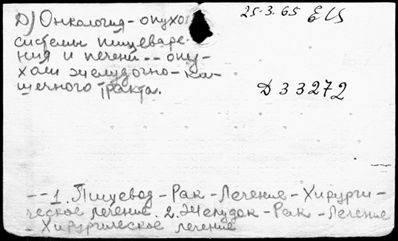 Д) Онкология - опухо
системы пищеваре-
ния и печени -- опу-
холи желудочно-ки-
шечного тракта.
25-3.65 ЕСБ
Д 33272
-- 1. Пищевод - Рак - Лечение - Хирурги-
ческое лечение. 2. Желудок - Рак - Лечение
- Хирургическое лечение